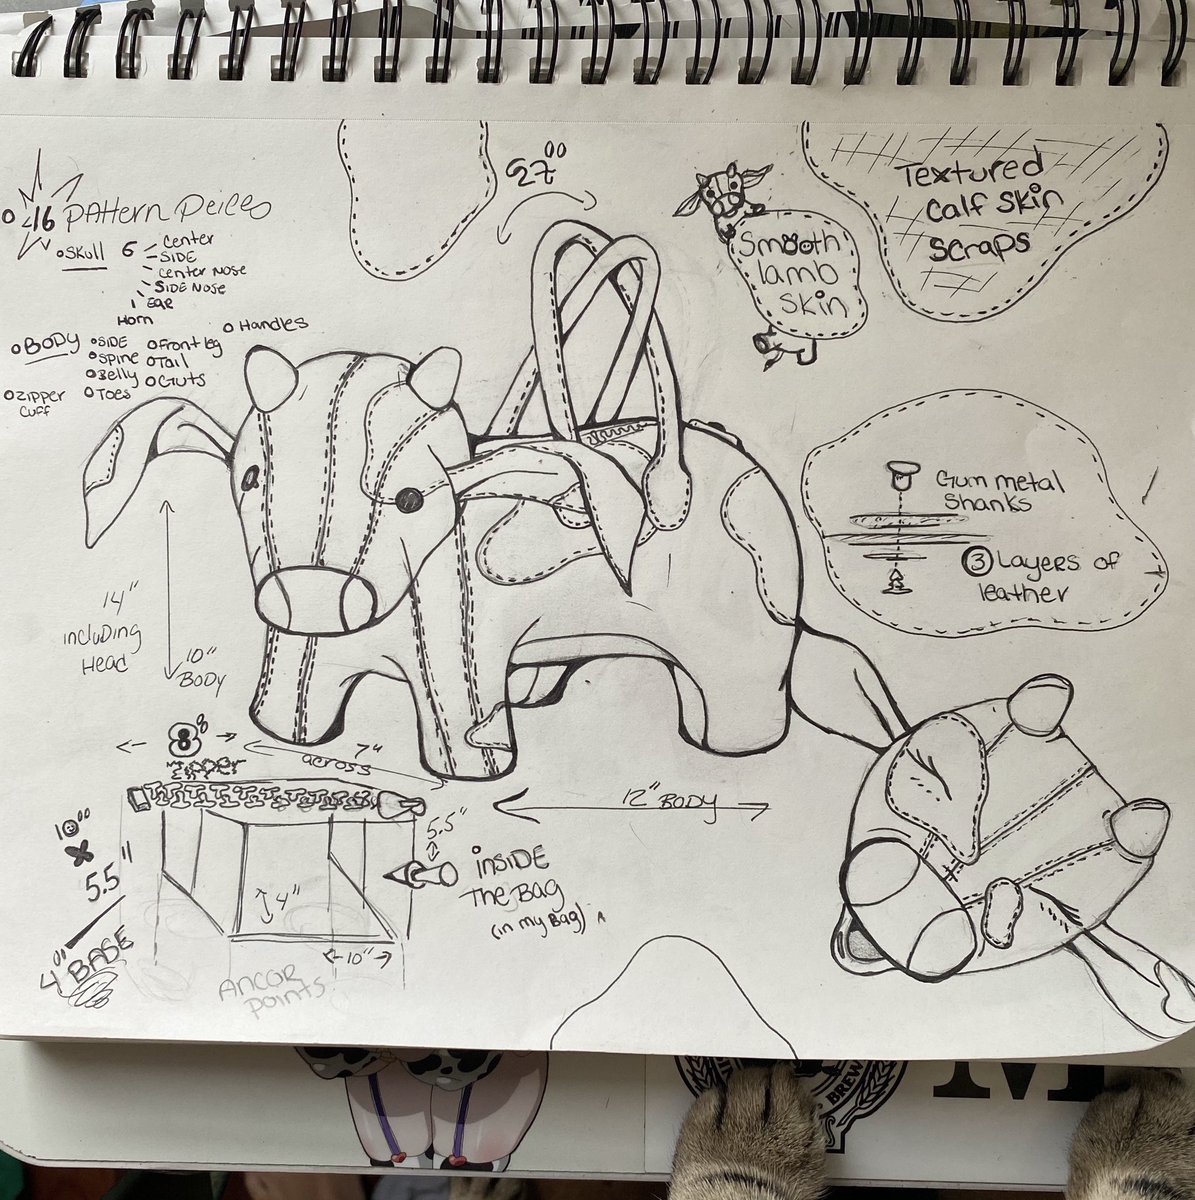 16 Pattern Peices
Skull 6
Center
SIDE
Center Nose
SIDE NOSE
Ear
Horn
BODY
SIDE
Spine
Belly
Toes
Front leg
Tail
Guts
Handles
Zipper
Cuff
27"
Smooth
lamb
skin
Textured
Calf Skin
Scraps
Gum metal
Shanks
3 Layers of
leather
14"
including
Head
10"
BODY
8"
Zipper
7"
across
12" BODY
10"
x
5.5"
4" BASE
5.5"
4"
10"
INSIDE
The Bag
(in my Bag)
ANCOR
Points
BREW
M